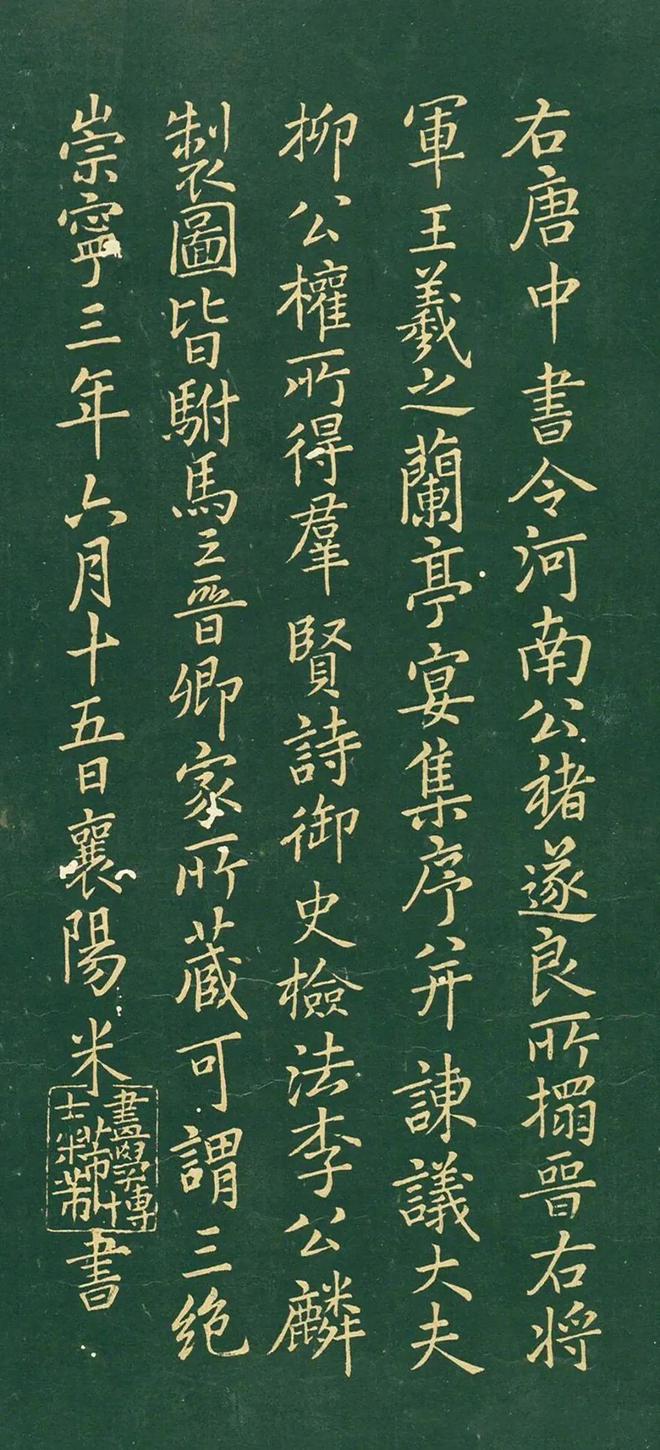 右唐中書令河南公褚遂良所搨晉右将
軍王羲之蘭亭宴集序并諌議大夫
柳公權所得羣賢詩御史檢法李公麟
製圖皆駙馬王晉卿家所蔵可謂三绝
崇寧三年六月十五日襄陽米
書畫學博
士米芾
書